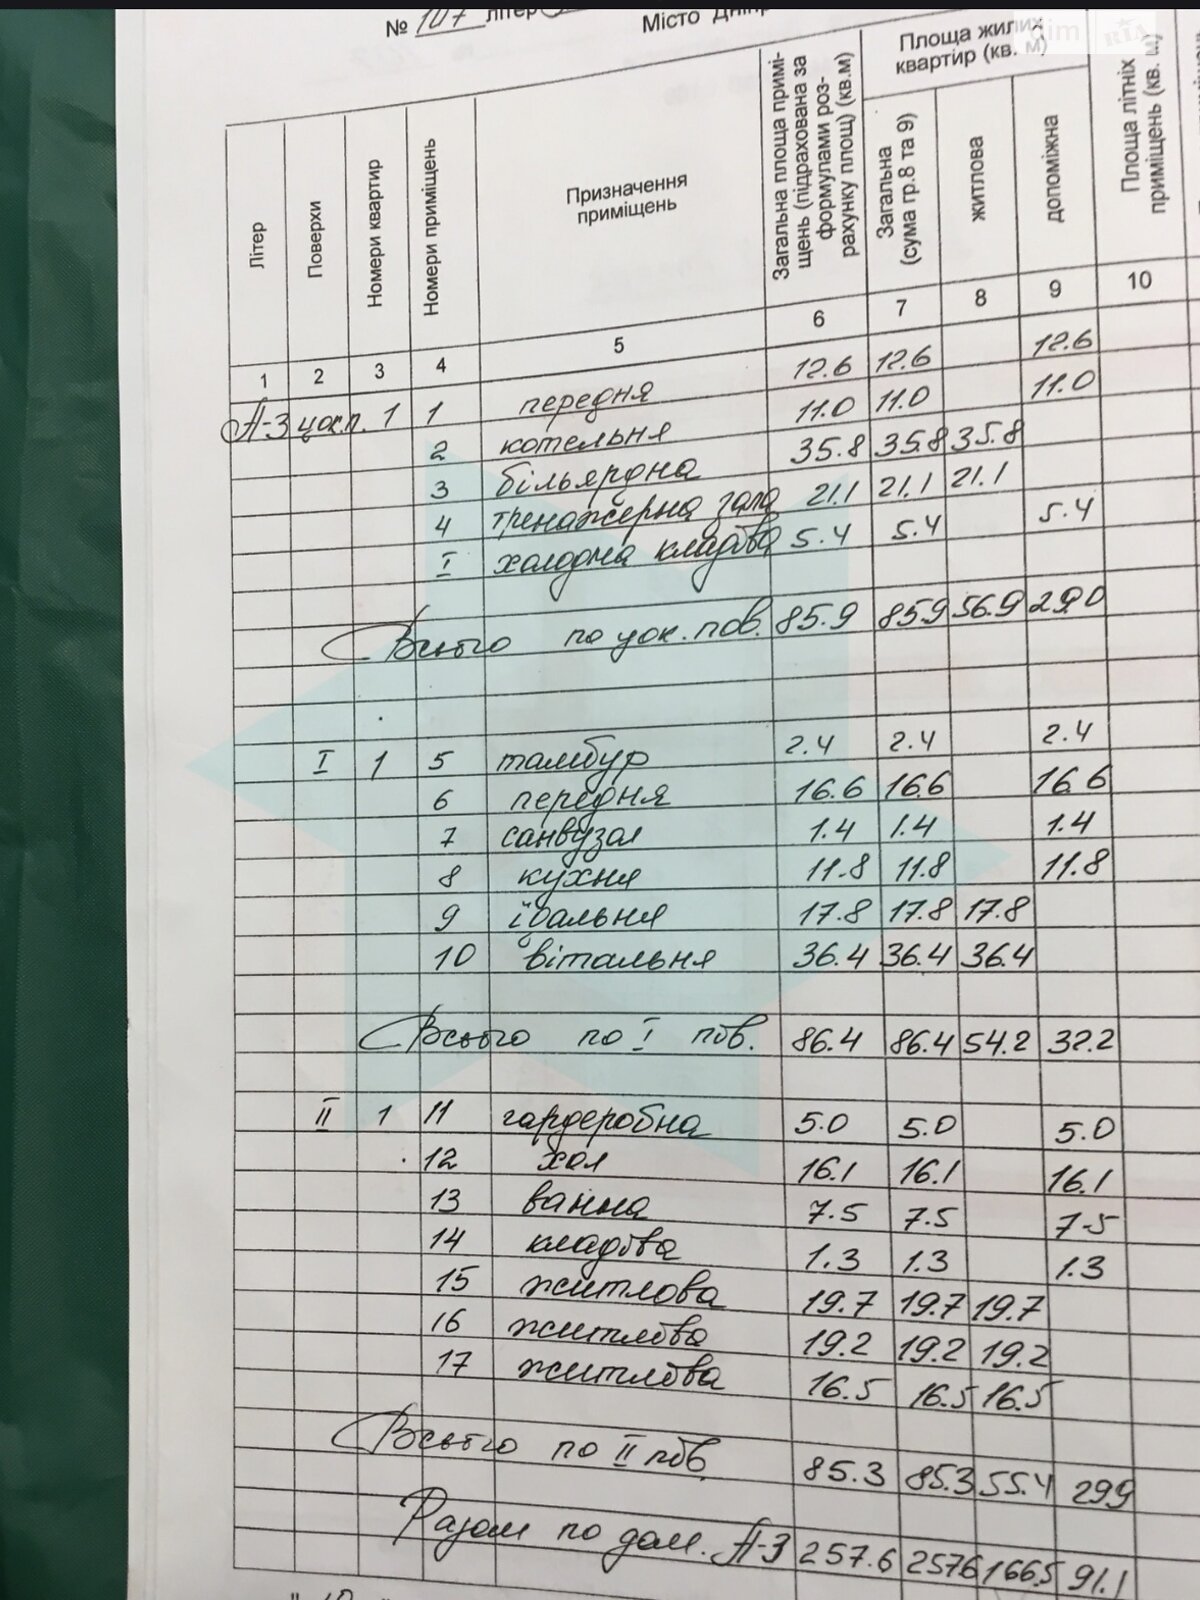 № 107 літер
Місто Дніп
dim RIA
Літер
Поверхи
Номери квартир
Номери приміщень
Призначення приміщень
Загальна площа примі-
щень (підрахована за
формулами роз-
рахунку площ) (кв.м)
Площа жилих
квартир (кв. м)
Загальна
(сума гр.8 та 9)
житлова
допоміжна
Площа літніх
приміщень (кв. м)
1 2 3 4 5 6 7 8 9 10
А-3 цок.п. 1 1 передня 12.6 12.6 12.6
2 котельня 11.0 11.0 11.0
3 більярдна 35.8 35.8 35.8
4 тренажерна зала 21.1 21.1 21.1
I холодна кладова 5.4 5.4 5.4
Всього по цок. пов. 85.9 85.9 56.9 29.0
I 1 5 тамбур 2.4 2.4 2.4
6 передня 16.6 16.6 16.6
7 санвузол 1.4 1.4 1.4
8 кухня 11.8 11.8 11.8
9 їдальня 17.8 17.8 17.8
10 вітальня 36.4 36.4 36.4
Всього по I пов. 86.4 86.4 54.2 32.2
II 1 11 гардеробна 5.0 5.0 5.0
12 хол 16.1 16.1 16.1
13 ванна 7.5 7.5 7.5
14 кладова 1.3 1.3 1.3
15 житлова 19.7 19.7 19.7
16 житлова 19.2 19.2 19.2
17 житлова 16.5 16.5 16.5
Всього по II пов. 85.3 85.3 55.4 29.9
Разом по дом. А-3 257.6 257.6 166.5 91.1